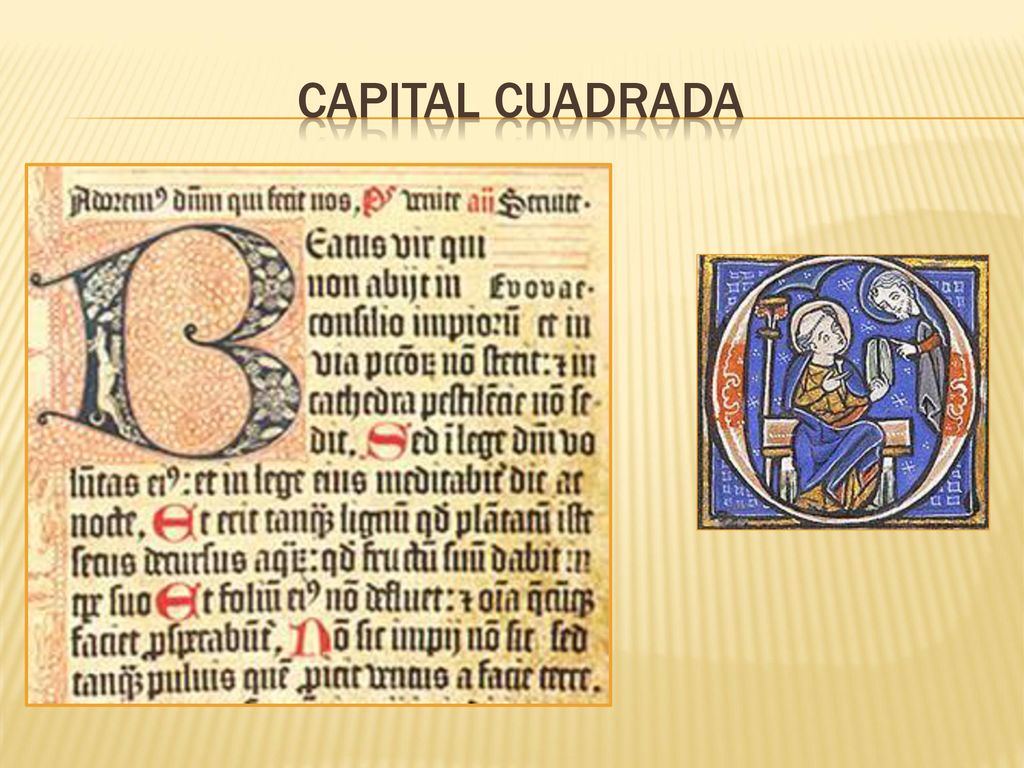 CAPITAL CUADRADA
Adorem⁹ dn̄m qui fecit nos, P̄s Venite an̄ Seruite.
Beatus vir qui
non abijt in Evovae.
consilio impiorū et in
via pccōꝝ nō stetit: ⁊ in
cathedra pestilēcie nō se-
dit. Sed ī lege dn̄i vo
lūtas ei⁹: et in lege eius meditabit̄ die ac
nocte. Et erit tanqꝫ lignū qd̄ plātatū iste
secus decursus aqꝝ: qd̄ fructū suū dabit in
tpe suo Et foliū ei⁹ nō defluet: ⁊ oīa q̄cūqꝫ
faciet ꝓsperabūt̄. Nō sic impij nō sic sed
tanqꝫ puluis quē ꝓicit ventus a facie terre.